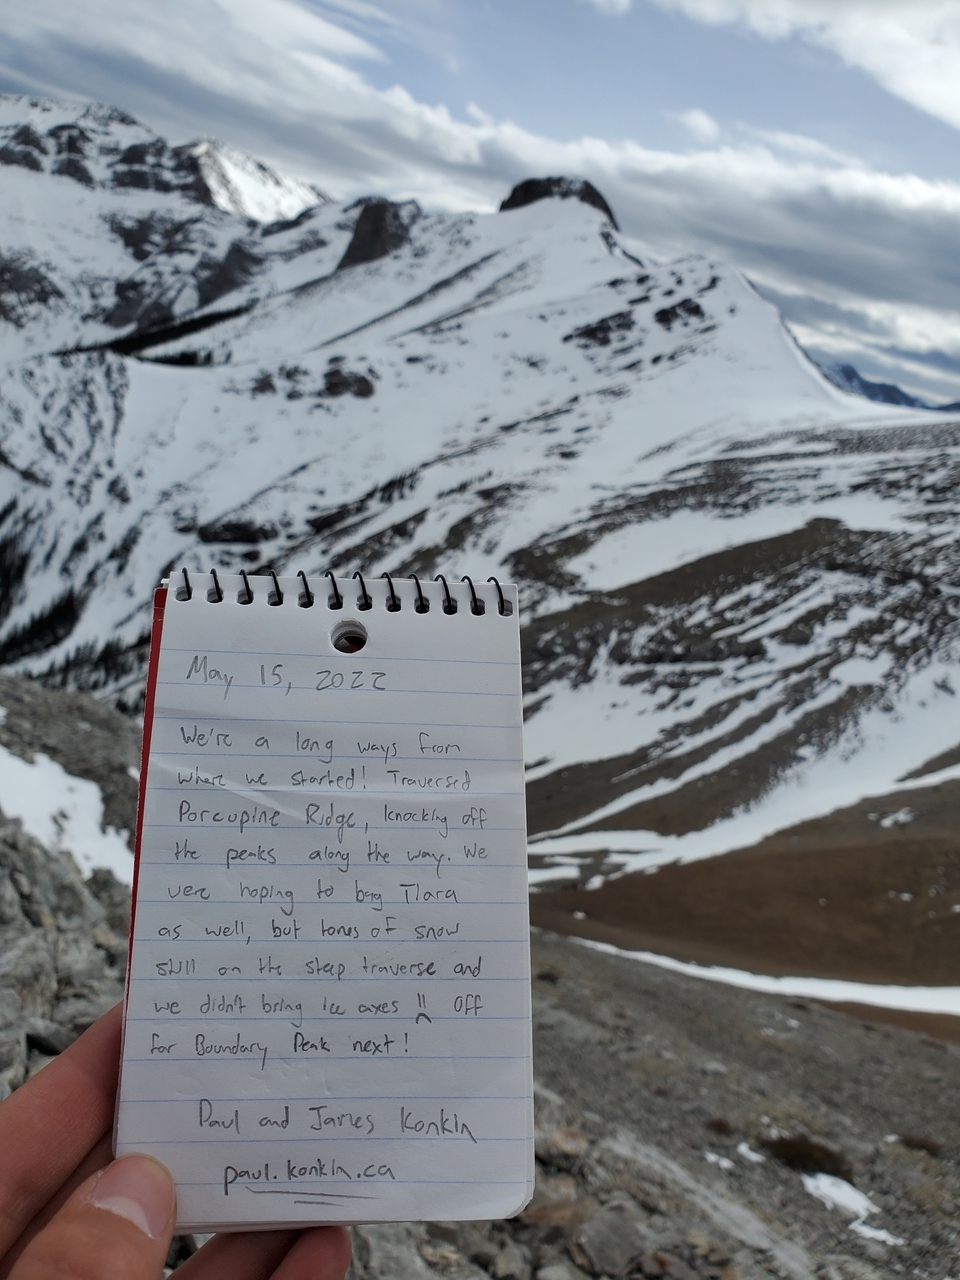 May 15, 2022
We're a long ways from
where we started! Traversed
Porcupine Ridge, knocking off
the peaks along the way. We
were hoping to bag Tiara
as well, but tones of snow
still on the steep traverse and
we didn't bring ice axes !! Off
for Boundary Peak next!
Paul and James Konkin
paul.konkin.ca